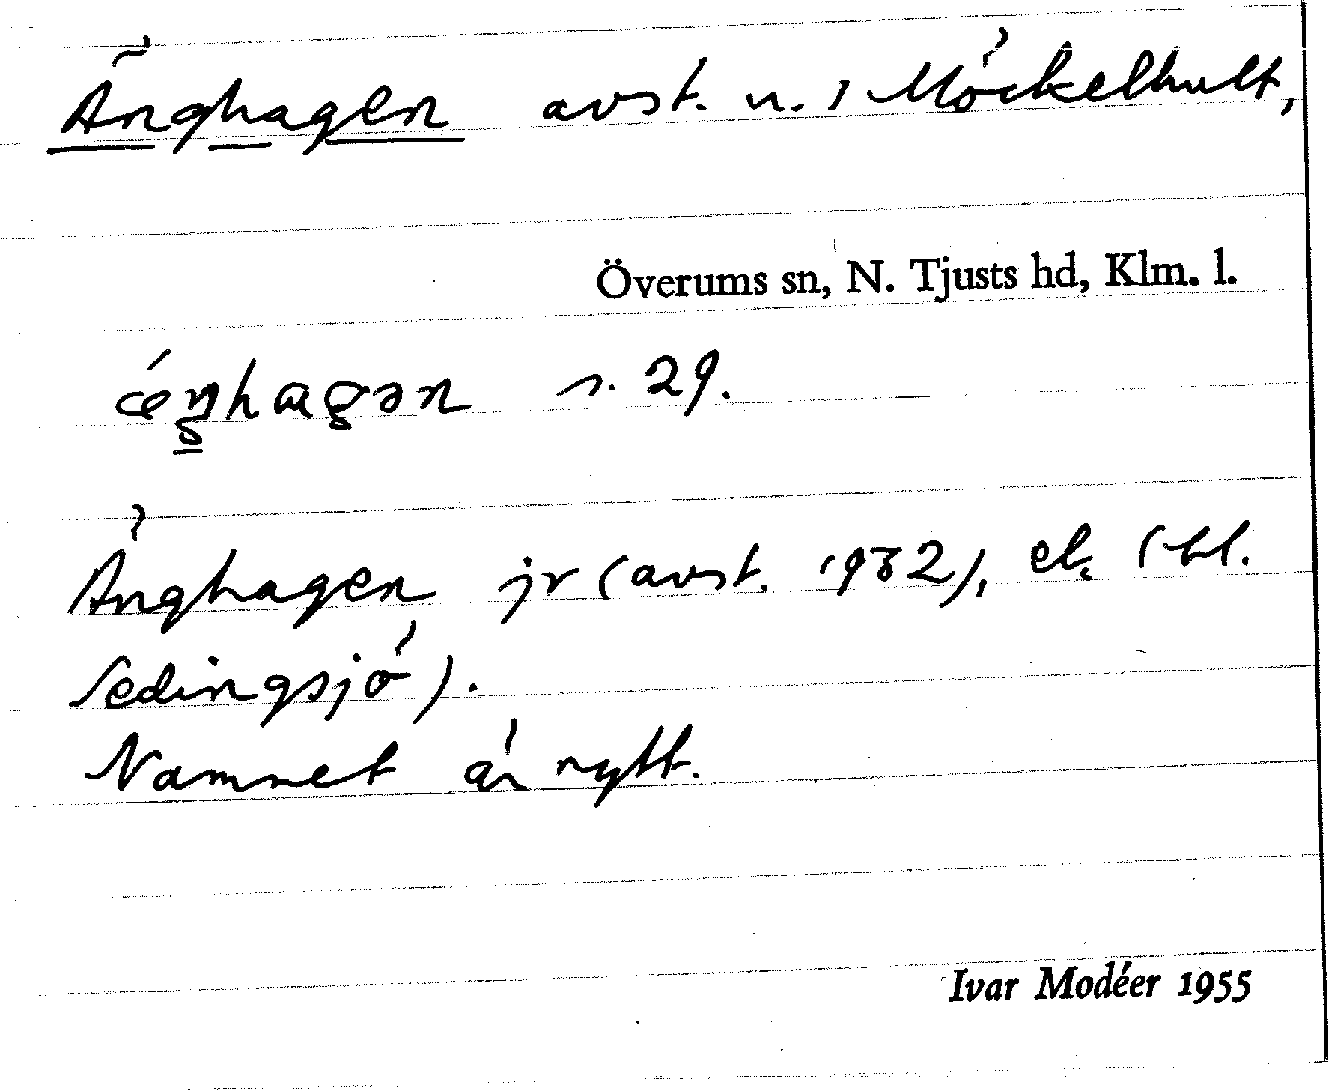 Änghagen avst. u. 1 Möckelhult,
Överums sn, N. Tjusts hd, Klm. l.
ǽŋhagən s. 29.
Änghagen jr (avst. 1932), ek (bl.
Sedingsjö).
Namnet är nytt.
Ivar Modéer 1955